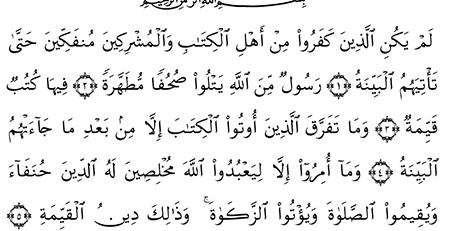 بِسْمِ اللَّهِ الرَّحْمَٰنِ الرَّحِيمِ
لَمْ يَكُنِ الَّذِينَ كَفَرُوا۟ مِنْ أَهْلِ الْكِتَابِ وَالْمُشْرِكِينَ مُنفَكِّينَ حَتَّىٰ
تَأْتِيَهُمُ الْبَيِّنَةُ ﴿١﴾ رَسُولٌ مِّنَ اللَّهِ يَتْلُوا۟ صُحُفًا مُّطَهَّرَةً ﴿٢﴾ فِيهَا كُتُبٌ
قَيِّمَةٌ ﴿٣﴾ وَمَا تَفَرَّقَ الَّذِينَ أُوتُوا۟ الْكِتَابَ إِلَّا مِنۢ بَعْدِ مَا جَآءَتْهُمُ
الْبَيِّنَةُ ﴿٤﴾ وَمَآ أُمِرُوٓا۟ إِلَّا لِيَعْبُدُوا۟ اللَّهَ مُخْلِصِينَ لَهُ الدِّينَ حُنَفَآءَ
وَيُقِيمُوا۟ الصَّلَوٰةَ وَيُؤْتُوا۟ الزَّكَوٰةَ ۚ وَذَٰلِكَ دِينُ الْقَيِّمَةِ ﴿٥﴾